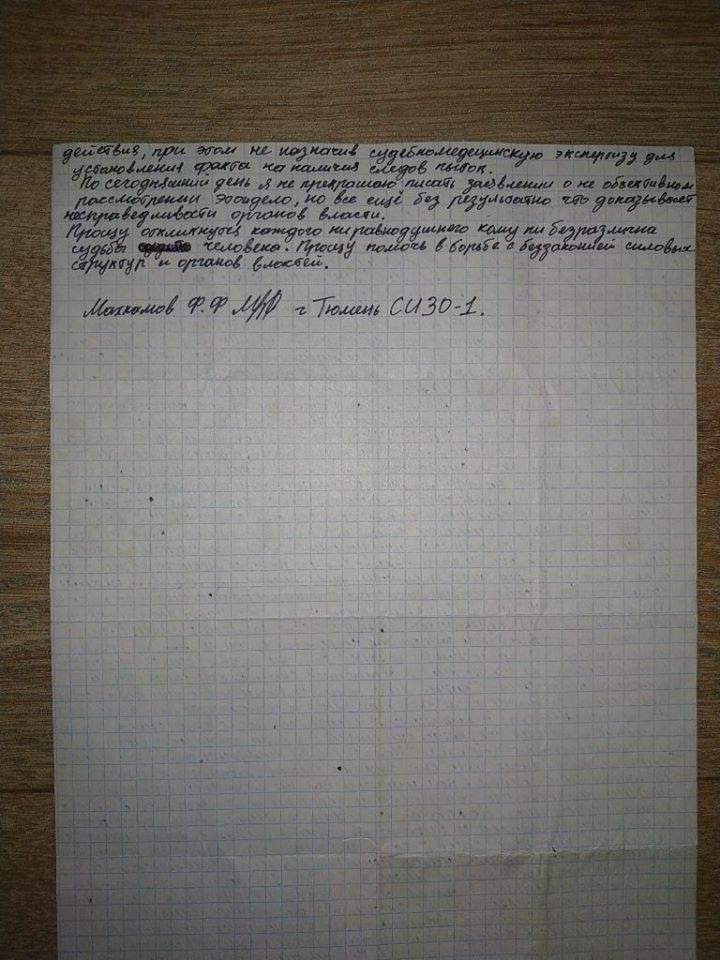 действия, при этом не назначив судебномедецинскую экспертизу для
установления факта на наличия следов пыток.
По сегодняшний день я не прекрашаю писать заевлении о не объективном
рассмотрении этой дело, но все ещё без результатно что доказывает
несправедливости органов власти.
Прошу откликнутся каждого ниравнодушнего кому ни безразлична
судьба человека. Прошу помочь в борьбе с беззаконией силовых
структур и органов властей.
Махкамов Ф.Ф г Тюмень СИЗО-1.